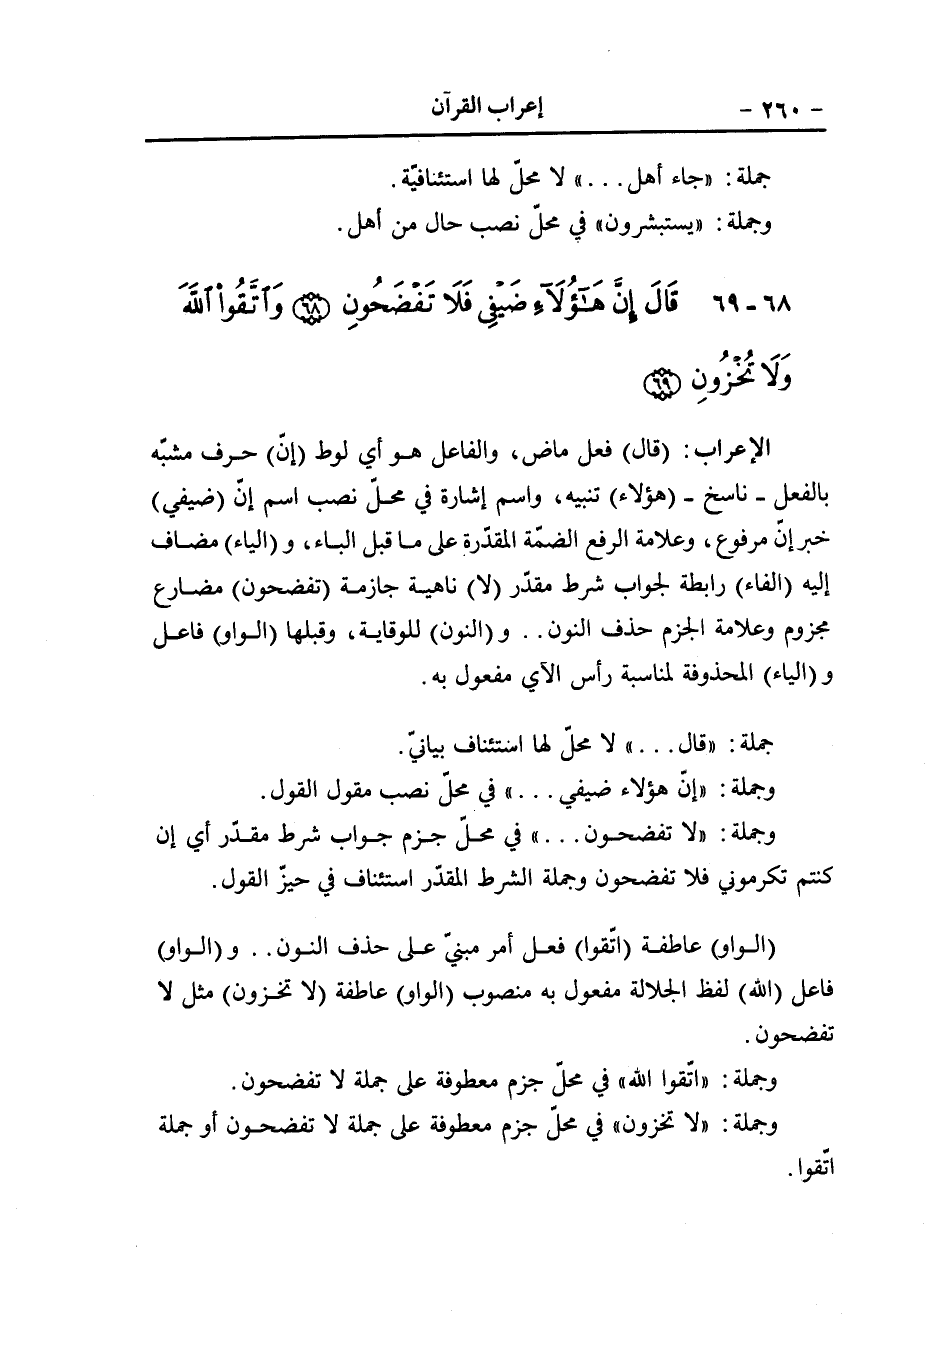 - ٢٦٠ - إعراب القرآن
جملة: «جاء أهل...» لا محلّ لها استئنافيّة.
وجملة: «يستبشرون» في محلّ نصب حال من أهل.
٦٨ - ٦٩ قَالَ إِنَّ هَـٰٓؤُلَآءِ ضَيْفِى فَلَا تَفْضَحُونِ ﴿٦٨﴾ وَٱتَّقُوا۟ ٱللَّهَ
وَلَا تُخْزُونِ ﴿٦٩﴾
الإعراب: (قال) فعل ماض، والفاعل هو أي لوط (إنّ) حرف مشبّه
بالفعل - ناسخ - (هؤلاء) تنبيه، واسم إشارة في محلّ نصب اسم إنّ (ضيفي)
خبر إنّ مرفوع، وعلامة الرفع الضمّة المقدّرة على ما قبل الباء، و (الياء) مضاف
إليه (الفاء) رابطة لجواب شرط مقدّر (لا) ناهية جازمة (تفضحون) مضارع
مجزوم وعلامة الجزم حذف النون.. و (النون) للوقاية، وقبلها (الواو) فاعل
و (الياء) المحذوفة لمناسبة رأس الآي مفعول به.
جملة: «قال...» لا محلّ لها استئناف بيانيّ.
وجملة: «إنّ هؤلاء ضيفي...» في محلّ نصب مقول القول.
وجملة: «لا تفضحون...» في محلّ جزم جواب شرط مقدّر أي إن
كنتم تكرموني فلا تفضحون وجملة الشرط المقدّر استئناف في حيزّ القول.
(الواو) عاطفة (اتّقوا) فعل أمر مبنيّ على حذف النون.. و (الواو)
فاعل (الله) لفظ الجلالة مفعول به منصوب (الواو) عاطفة (لا تخزون) مثل لا
تفضحون.
وجملة: «اتّقوا الله» في محلّ جزم معطوفة على جملة لا تفضحون.
وجملة: «لا تخزون» في محلّ جزم معطوفة على جملة لا تفضحون أو جملة
اتّقوا.